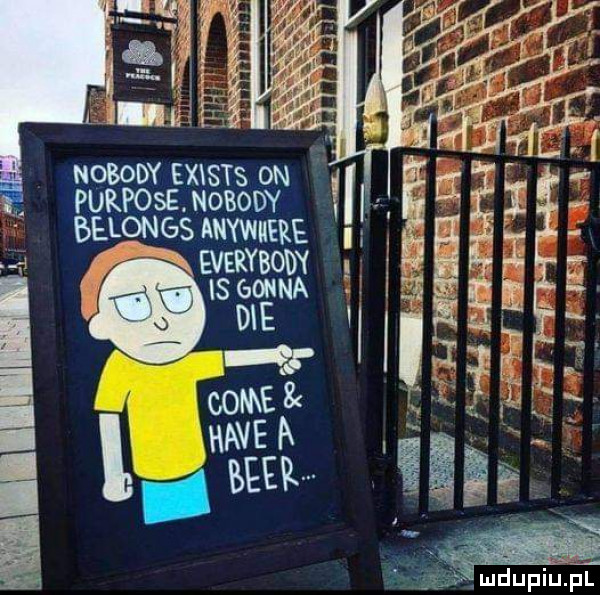 THE
NOBODY EXISTS ON
PURPOSE. NOBODY
BELONGS ANYWHERE
EVERYBODY
IS GONNA
DIE
COME &
HAVE A
BEER...
mdupiu.pl